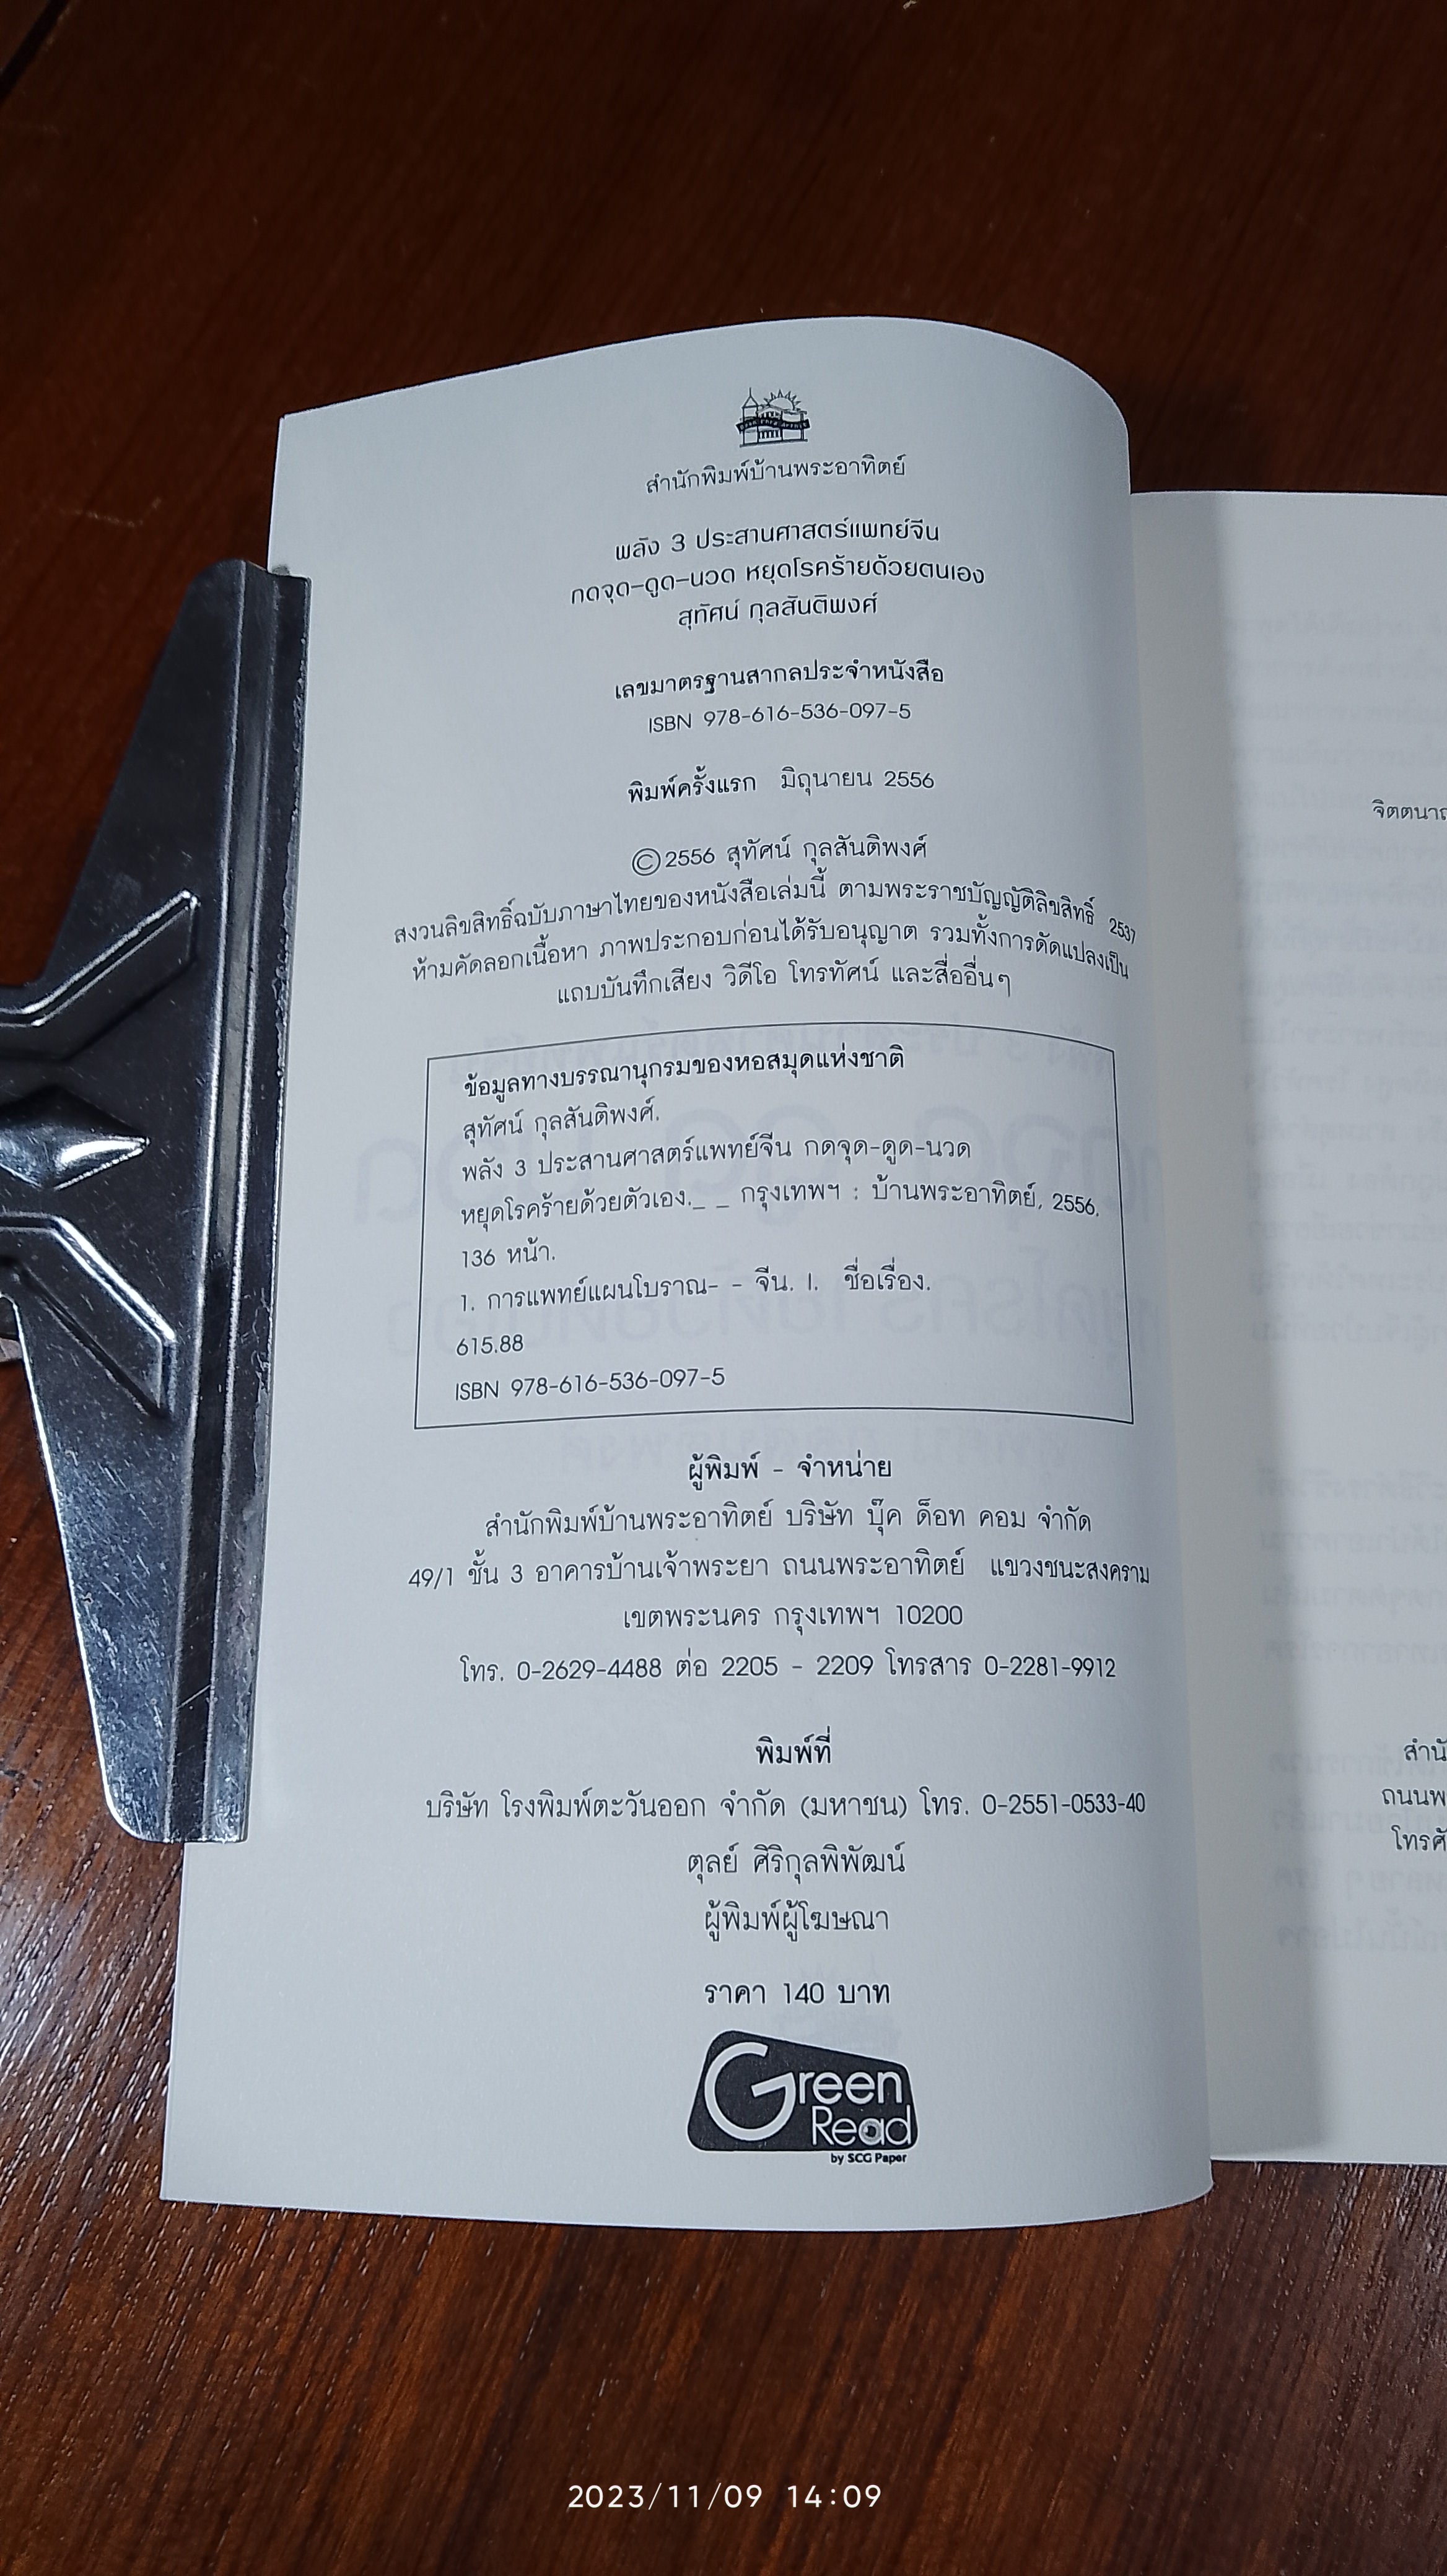 สำนักพิมพ์บ้านพระอาทิตย์
พลัง 3 ประสานศาสตร์แพทย์จีน
กดจุด-ดูด-นวด หยุดโรคร้ายด้วยตนเอง
สุทัศน์ กุลสันติพงศ์
เลขมาตรฐานสากลประจำหนังสือ
ISBN 978-616-536-097-5
พิมพ์ครั้งแรก มิถุนายน 2556
©2556 สุทัศน์ กุลสันติพงศ์
สงวนลิขสิทธิ์ฉบับภาษาไทยของหนังสือเล่มนี้ ตามพระราชบัญญัติลิขสิทธิ์ 2537
ห้ามคัดลอกเนื้อหา ภาพประกอบก่อนได้รับอนุญาต รวมทั้งการดัดแปลงเป็น
แถบบันทึกเสียง วิดีโอ โทรทัศน์ และสื่ออื่นๆ
ข้อมูลทางบรรณานุกรมของหอสมุดแห่งชาติ
สุทัศน์ กุลสันติพงศ์.
พลัง 3 ประสานศาสตร์แพทย์จีน กดจุด-ดูด-นวด
หยุดโรคร้ายด้วยตัวเอง._ _ กรุงเทพฯ : บ้านพระอาทิตย์, 2556.
136 หน้า.
1. การแพทย์แผนโบราณ- - จีน. I. ชื่อเรื่อง.
615.88
ISBN 978-616-536-097-5
ผู้พิมพ์ - จำหน่าย
สำนักพิมพ์บ้านพระอาทิตย์ บริษัท บุ๊ค ด็อท คอม จำกัด
49/1 ชั้น 3 อาคารบ้านเจ้าพระยา ถนนพระอาทิตย์ แขวงชนะสงคราม
เขตพระนคร กรุงเทพฯ 10200
โทร. 0-2629-4488 ต่อ 2205 - 2209 โทรสาร 0-2281-9912
พิมพ์ที่
บริษัท โรงพิมพ์ตะวันออก จำกัด (มหาชน) โทร. 0-2551-0533-40
ตุลย์ ศิริกุลพิพัฒน์
ผู้พิมพ์ผู้โฆษณา
ราคา 140 บาท
Green
Read
by SCG Paper
ถนนพ
2023/11/09 14:09